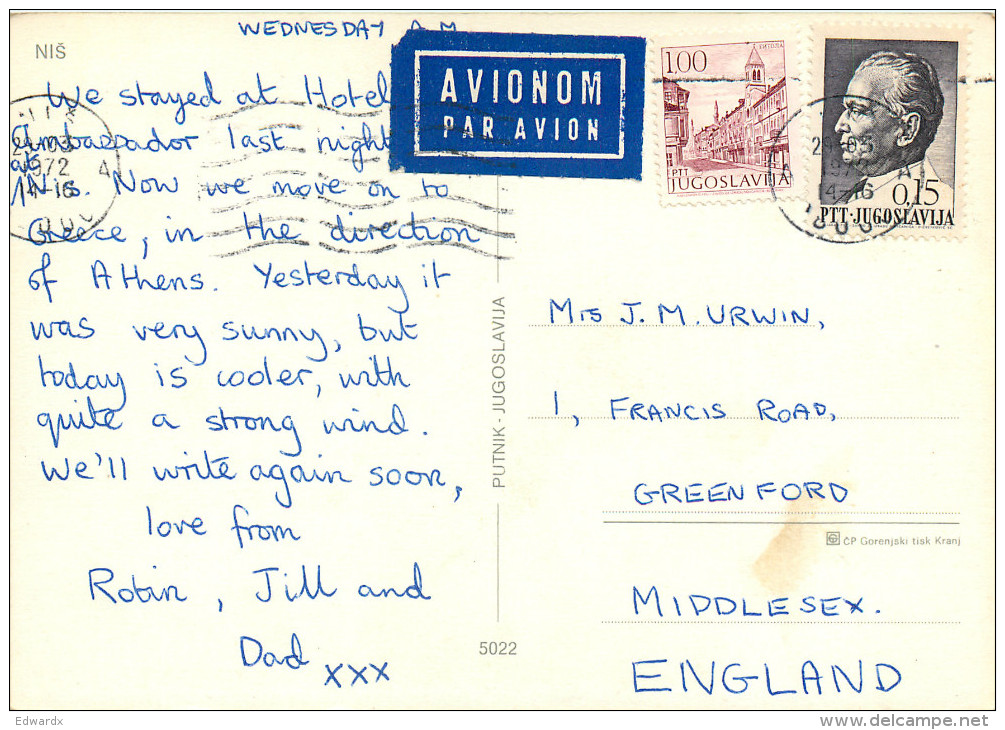 WEDNESDAY A.M.
NIŠ
We stayed at Hotel
Ambassador last night
at
Nis. Now we move on to
Greece, in the direction
of Athens. Yesterday it
was very sunny, but
today is cooler, with
quite a strong wind.
We'll write again soon,
love from
Robin, Jill and
Dad xxx
AVIONOM
PAR AVION
1.00
PTT
JUGOSLAVIJA
0,15
PTT·JUGOSLAVIJA
1972
14-16
14-16
PUTNIK - JUGOSLAVIJA
5022
Mrs J. M. URWIN,
1, FRANCIS ROAD,
GREENFORD
ČP Gorenjski tisk Kranj
MIDDLESEX.
ENGLAND
Edwardx
delcampe.net